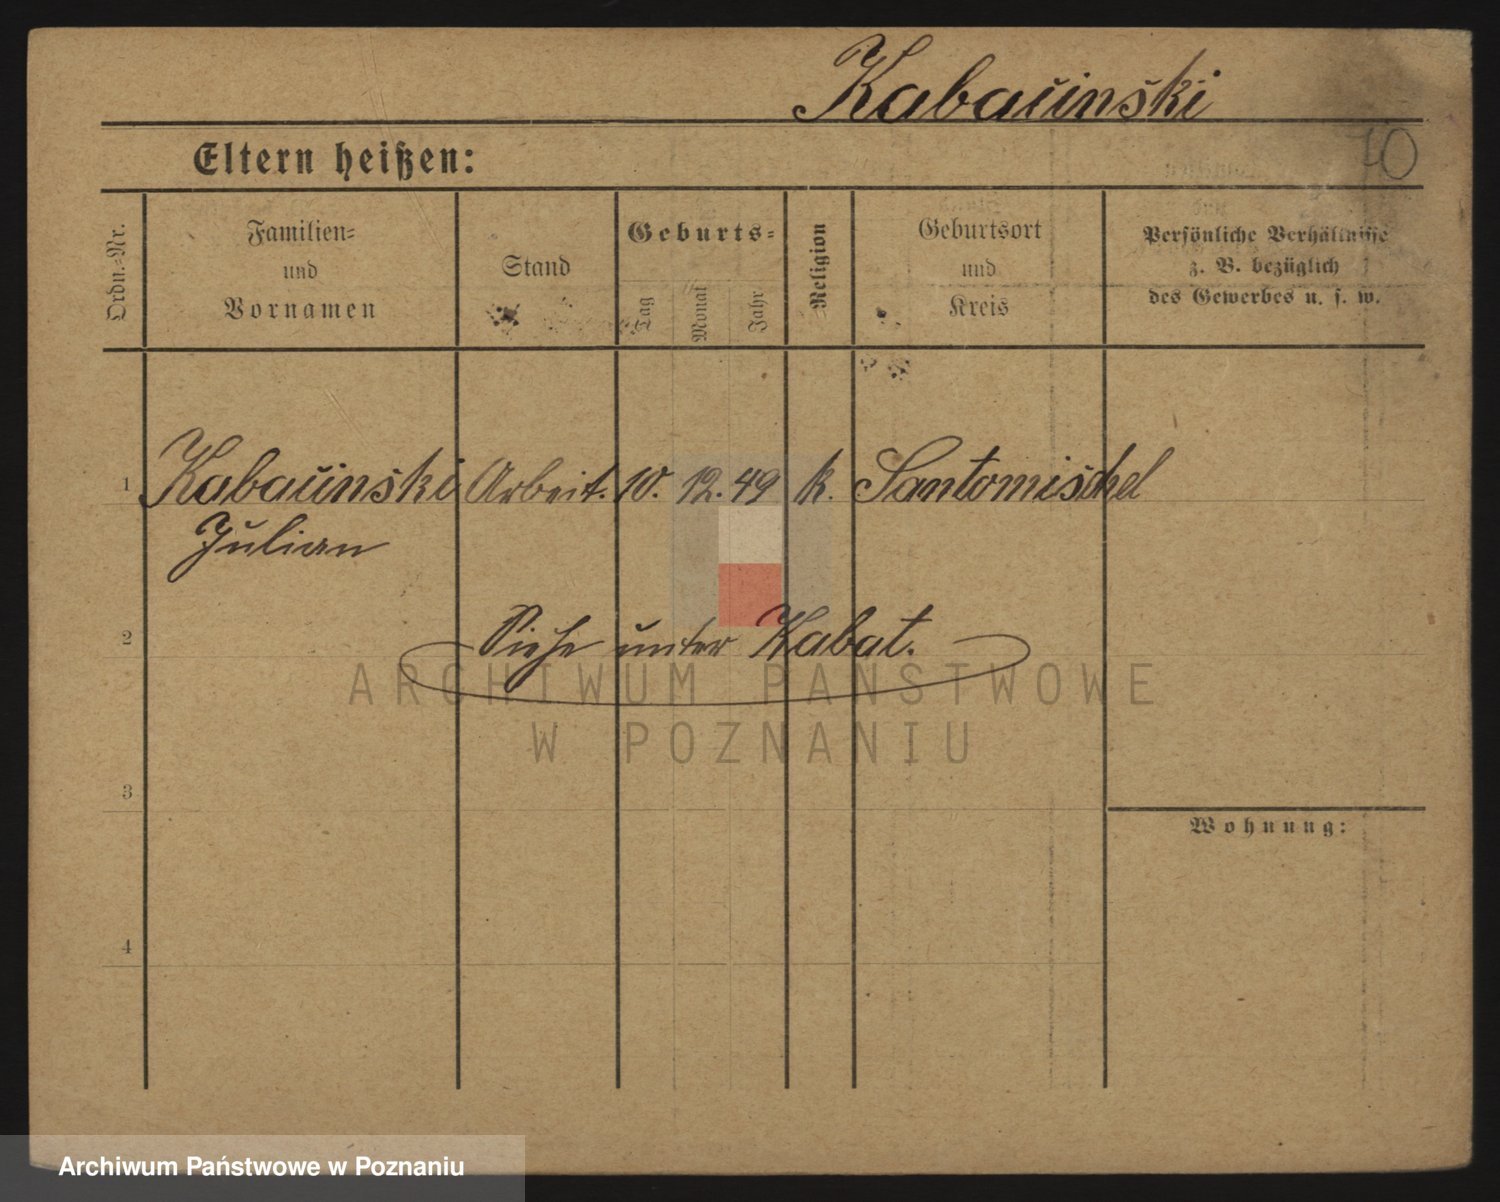 Kabaciński
70
Eltern heißen:
Ordn.-Nr.
Familien-
und
Vornamen
Stand
Geburts-
Tag
Monat
Jahr
Religion
Geburtsort
und
Kreis
Persönliche Verhältnisse
z. B. bezüglich
des Gewerbes u. s. w.
1 Kabaciński Arbeit. 10. 12. 49 k. Santomischel
Julian
2 Siehe unter Kabat.
ARCHIWUM PAŃSTWOWE
W POZNANIU
3
Wohnung:
4
Archiwum Państwowe w Poznaniu